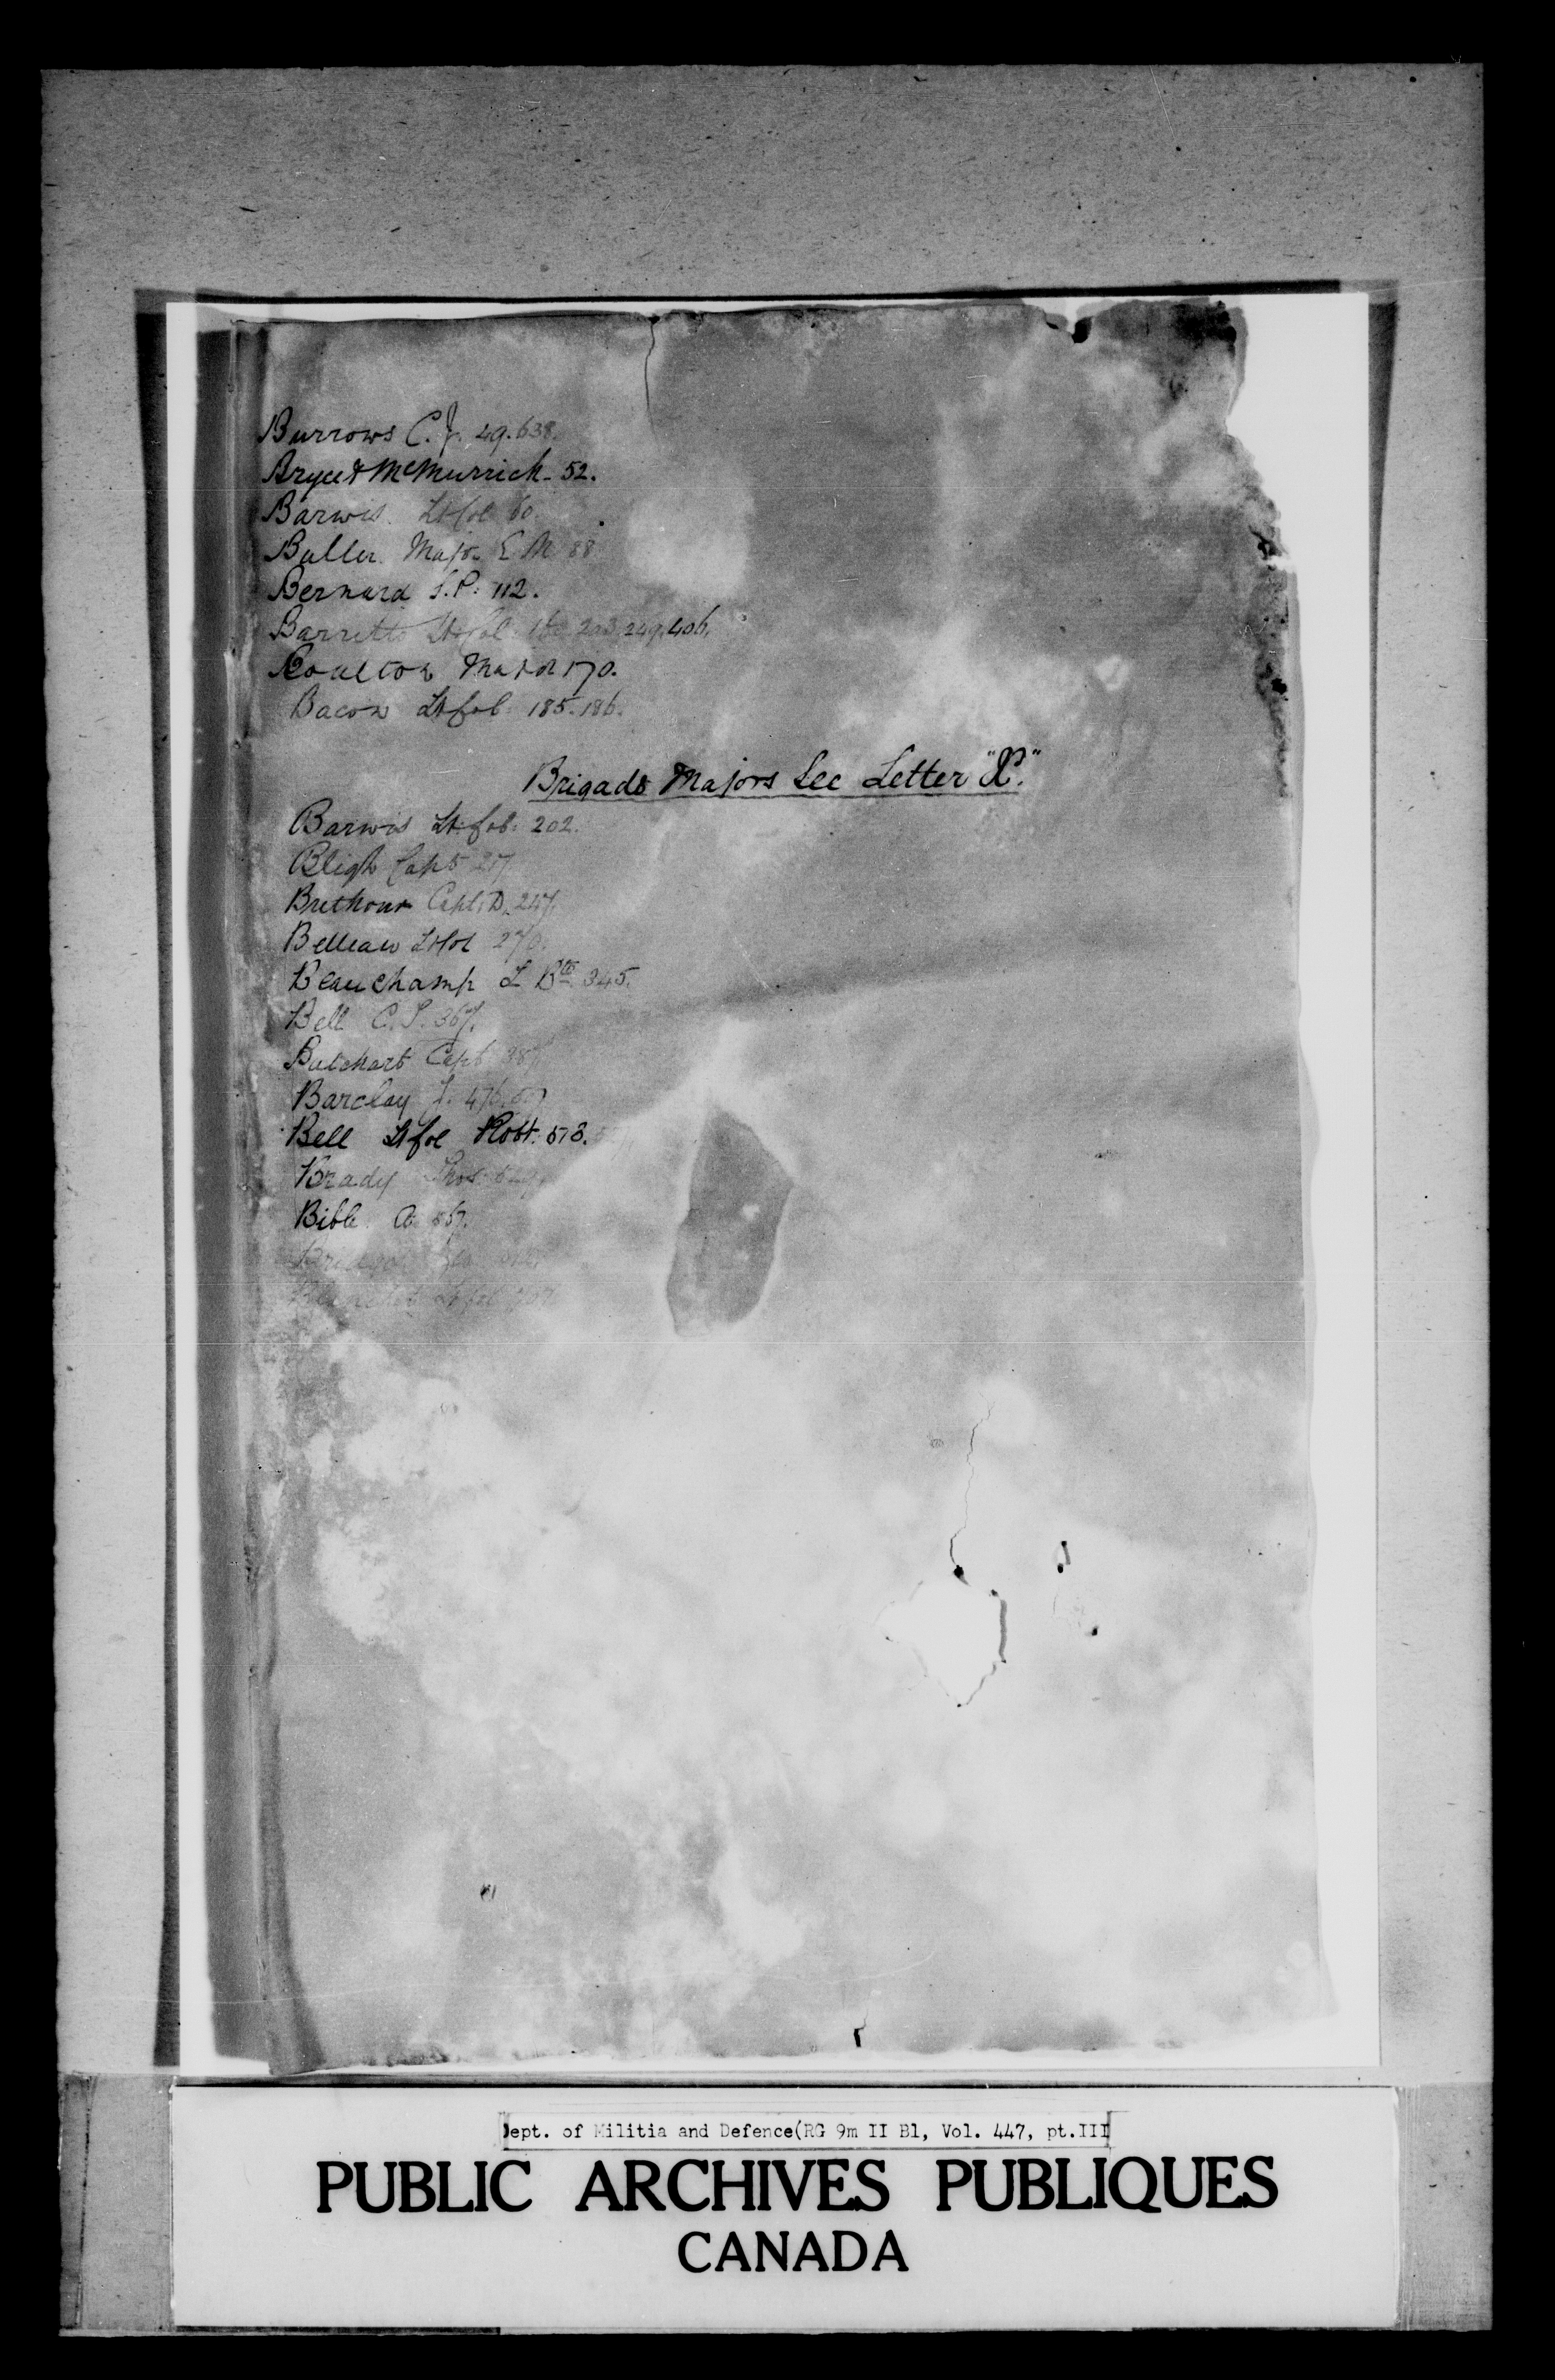 Burrows C. J. 49. 638.
Bryce & McMurrich - 52.
Barwis Lt Col 60.
Buller Major E M 88
Bernard S. P. 112.
Barretto Lt Col. 203. 249. 406.
Boulton Major 170.
Bacon Lt Col: 185. 186.
Brigade Majors See Letter "X".
Barwis Lt. Col: 202.
Bligh Capt
Brethour Capt. D. 247.
Belleau Lt Col 270.
Beauchamp L Bte 345.
Bell C. S. 367.
Butchart Capt 387
Barclay J. 476.
Bell Lt Col Robt. 513.
Brady Thos.
Bible A. 567.
Lt Col
Dept. of Militia and Defence(RG 9m II B1, Vol. 447, pt.III
PUBLIC ARCHIVES PUBLIQUES
CANADA